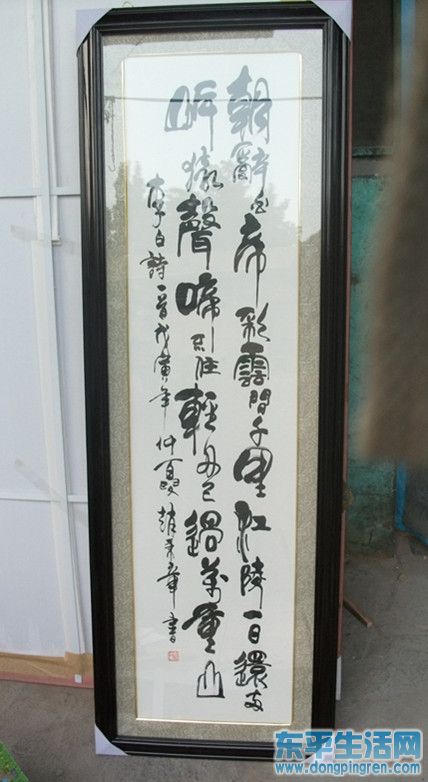 朝辭白帝彩雲間千里江陵一日還兩
岸猿聲啼不住輕舟已過萬重山
李白詩一首戊寅年仲夏趙章書
东平生活网
www.dongpingren.com